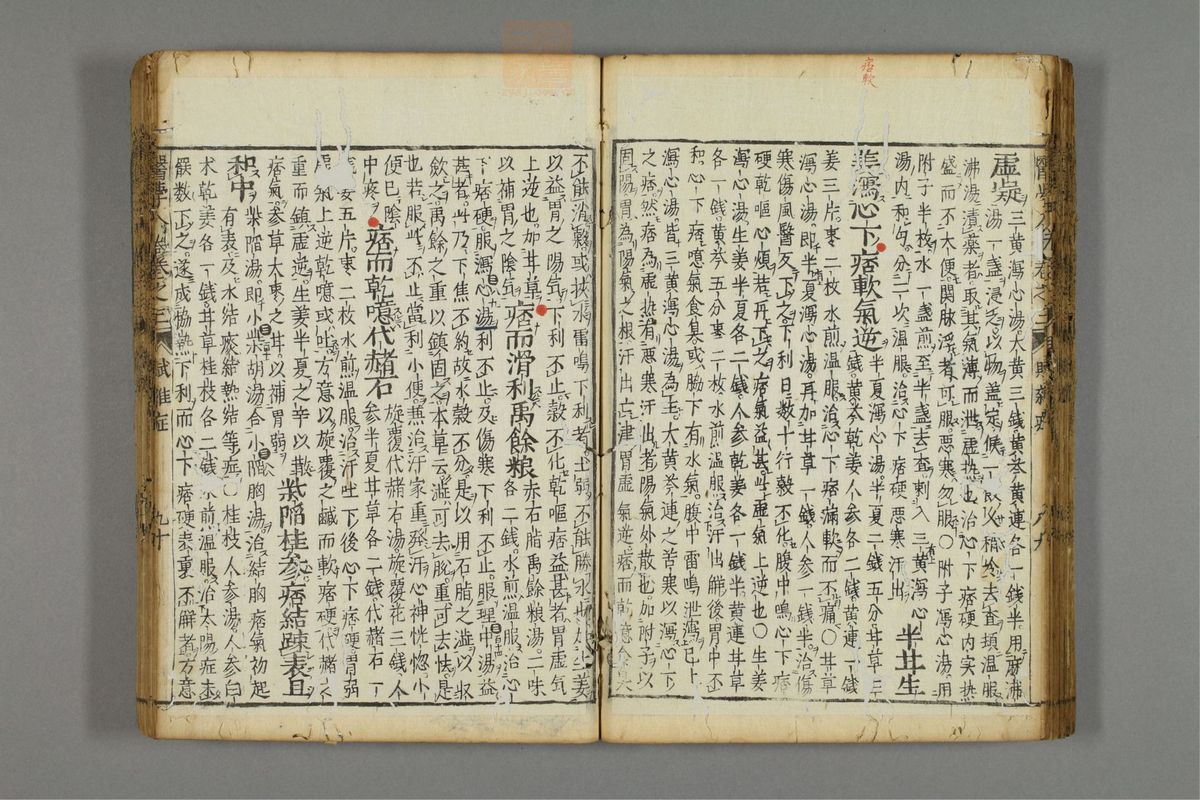 痞軟
虛疑 三黃瀉心湯大黃三錢黃芩黃連各一錢半用麻沸
湯一盞浸之以物盖定候一般久稍冷去査頻温服
沸湯漬藥者取其氣薄而泄虛熱也治心下痞硬内実热
盛而不大便関脉浮者可服惡寒勿服〇附子瀉心湯用
附子半枚水一盞煎至半盞去査刺入三黃瀉心
湯内和匀分二次温服治心下痞硬惡寒汗出 半甘生
姜瀉心下痞軟氣逆 半夏瀉心湯半夏二錢五分甘草三
錢黃芩乾姜人參各二錢黃連一錢
姜三片枣二枚水煎温服治心下痞滿軟而不痛〇甘草
瀉心湯即半夏瀉心湯再加甘草一錢人參一錢半治傷
寒傷風醫反下之下利日数十行穀不化腹中鳴心下痞
硬乾嘔心煩若再下之痞氣益甚此虛氣上逆也〇生姜
瀉心湯生姜半夏各二錢人參乾姜各一錢半黃連甘草
各一錢黃芩五分枣二枚水煎温服治汗出解後胃中不
和心下痞噫氣食臭或脇下有水氣腹中雷鳴泄瀉已上
瀉心湯皆三黃瀉心湯為主大黃芩連之苦寒以瀉心下
之痞然痞為虛热有惡寒汗出者陽氣外散也加附子以
固陽胃為陽氣之根汗出亡津胃虛氣逆痞而乾噫食臭
不能消穀或挾水雷鳴下利者土弱不能勝水故加生姜
以益胃之陽氣下利不止穀不化乾嘔痞益甚者胃虛氣
上逆也加甘草 痞而滑利禹餘粮 赤石脂禹餘粮湯二味
以補胃之陰氣 各二錢水煎温服治心
下痞硬服瀉心湯利不止及傷寒下利不止服理中湯益
甚者此乃下焦不約故水穀不分是以用石脂之澁以収
飲之禹餘之重以鎮固之本草云澁可去脫重可去怯是
也若服此不止當利小便無治汗家重發汗心神恍惚小
便已陰 痞而乾噫代赭石 旋覆代赭石湯旋覆花三錢人
中疼 參半夏甘草各二錢代赭石一
錢姜五片枣二枚水煎温服治汗吐下後心下痞硬胃弱
虛氣上逆乾噫或吐方意以旋覆之鹹而軟痞硬代赭之
重而鎮虛逆生姜半夏之辛以散 柴陷桂參痞結疎表且
痞氣參草大枣之甘以補胃弱
和中 柴陷湯即小柴胡湯合小陷胸湯治結胸痞氣初起
有表及水結痰結熱結等症〇桂枝人參湯人參白
术乾姜各一錢甘草桂枝各二錢水煎温服治太陽症未
解数下之遂成協熱下利而心下痞硬表裏不解者方意